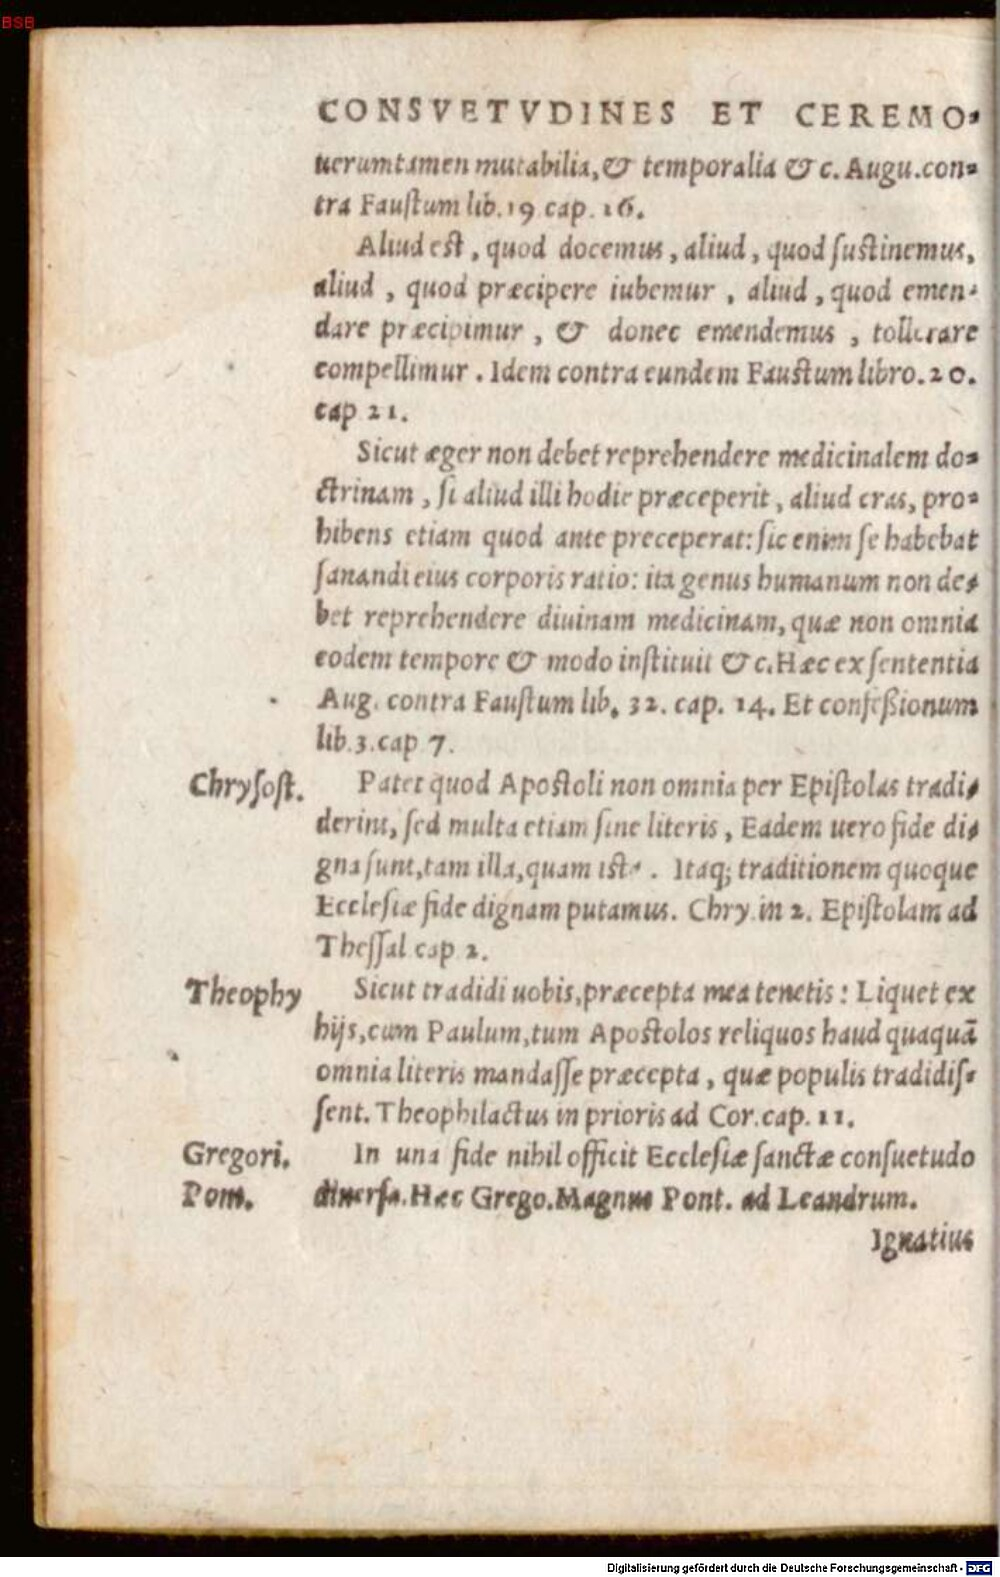 BSB
CONSVETVDINES ET CEREMO-
uerumtamen mutabilia, & temporalia & c. Augu. con-
tra Faustum lib. 19 cap. 16.
Aliud est, quod docemus, aliud, quod sustinemus,
aliud, quod præcipere iubemur, aliud, quod emen-
dare præcipimur, & donec emendemus, tollerare
compellimur. Idem contra eundem Faustum libro. 20.
cap 21.
Sicut æger non debet reprehendere medicinalem do-
ctrinam, si aliud illi hodie præceperit, aliud cras, pro-
hibens etiam quod ante preceperat: sic enim se habebat
sanandi eius corporis ratio: ita genus humanum non de-
bet reprehendere diuinam medicinam, quæ non omnia
eodem tempore & modo instituit & c. Hæc ex sententia
Aug. contra Faustum lib. 32. cap. 14. Et confeßionum
lib. 3. cap 7.
Chrysost. Patet quod Apostoli non omnia per Epistolas tradi-
derint, sed multa etiam sine literis, Eadem uero fide di-
gna sunt, tam illa, quam ista. Itaq; traditionem quoque
Ecclesiæ fide dignam putamus. Chry. in 2. Epistolam ad
Thessal cap 2.
Theophy Sicut tradidi uobis, præcepta mea tenetis: Liquet ex
hijs, cum Paulum, tum Apostolos reliquos haud quaquā
omnia literis mandasse præcepta, quæ populis tradidis-
sent. Theophilactus in prioris ad Cor. cap. 11.
Gregori. In una fide nihil officit Ecclesiæ sanctæ consuetudo
Pont. diuersa. Hæc Grego. Magnus Pont. ad Leandrum.
Ignatius
Digitalisierung gefördert durch die Deutsche Forschungsgemeinschaft - DFG